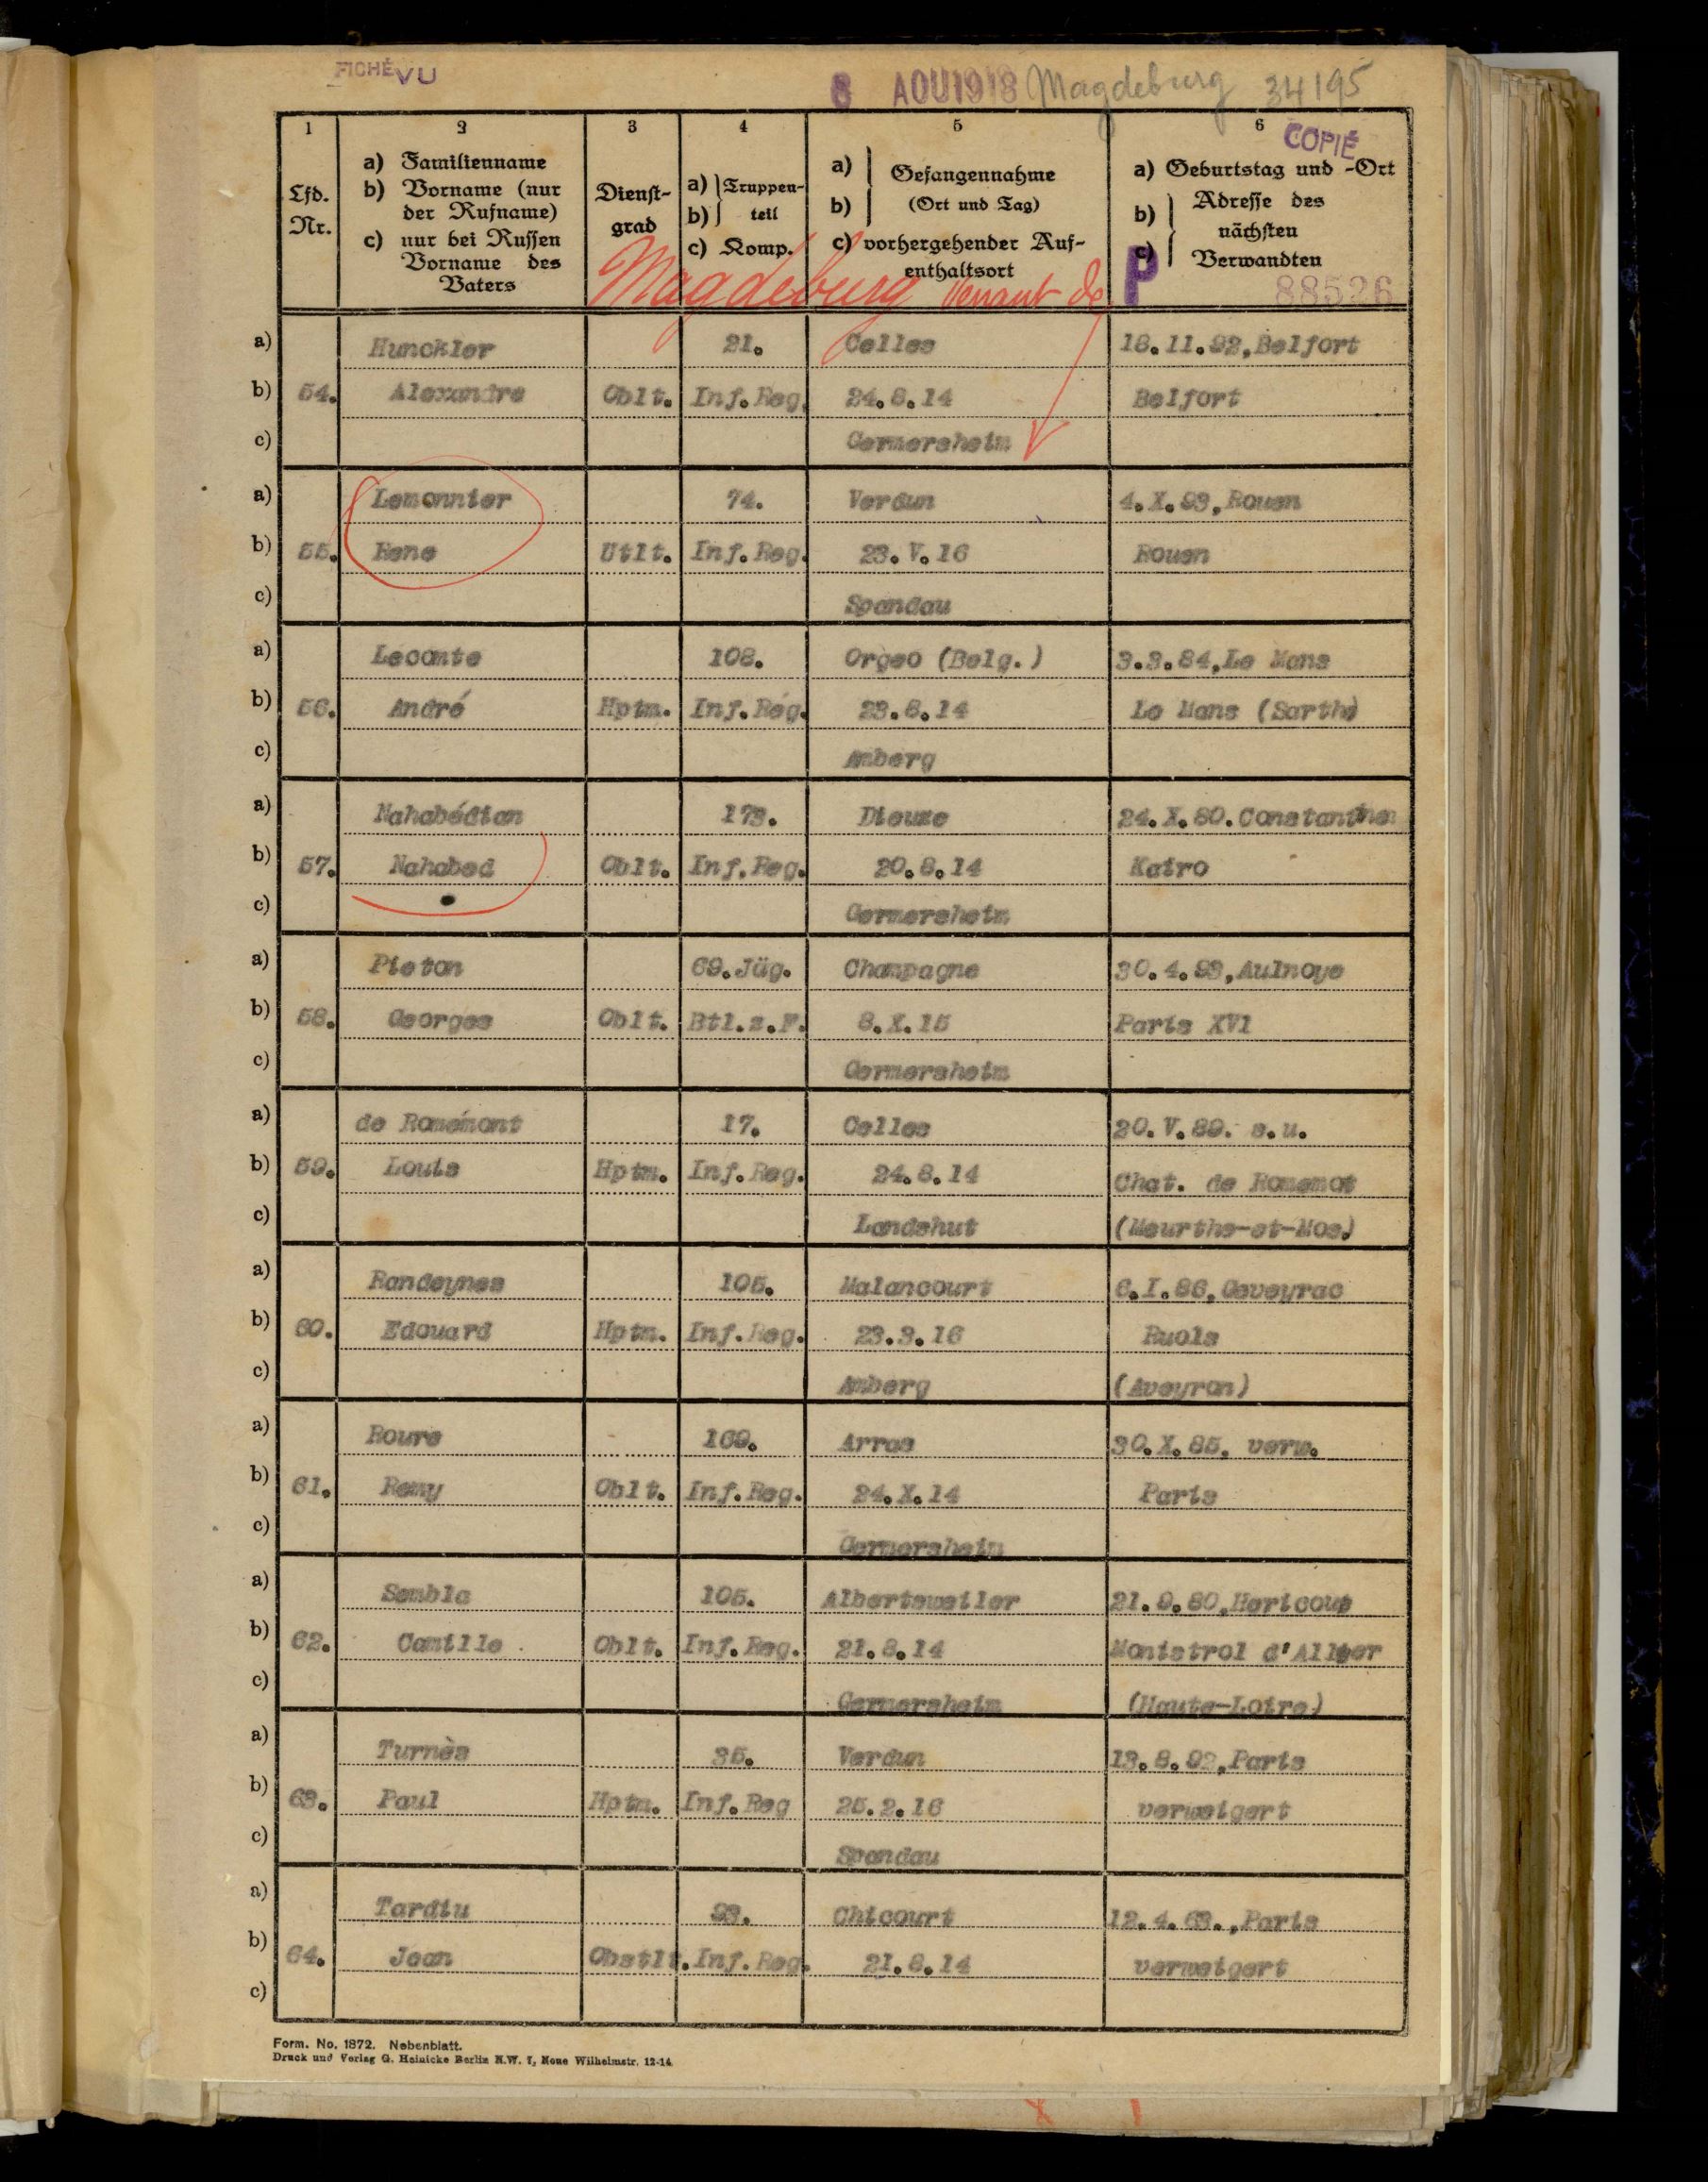 FICHÉ VU
8 AOU 1918 Magdeburg 34195
1 2 3 4 5 6
COPIÉ
Lfd. Nr.
a) Familienname
b) Vorname (nur
der Rufname)
c) nur bei Russen
Vorname des
Vaters
Dienst-
grad
a) Truppen-
b) teil
c) Komp.
a) Gefangennahme
b) (Ort und Tag)
c) vorhergehender Auf-
enthaltsort
a) Geburtstag und -Ort
b) Adresse des
nächsten
c) Verwandten
Magdeburg venant de
P
88526
a) Hunckler 21. Celles 18.11.92,Belfort
b) 54. Alexandre Oblt. Inf.Reg. 24.8.14 Belfort
c) Germersheim
a) Lemonnier 74. Verdun 4.X.93,Rouen
b) 55. Rene Utlt. Inf.Reg. 23.V.16 Rouen
c) Spandau
a) Lecomte 108. Orgeo (Belg.) 3.3.84,Le Mans
b) 56. André Hptm. Inf.Rég. 23.8.14 Le Mans (Sarthe)
c) Amberg
a) Nahabédian 173. Dieuze 24.X.80.Constantinen
b) 57. Nahabed Oblt. Inf.Reg. 20.8.14 Kairo
c) Germersheim
a) Pieton 69.Jäg. Champagne 30.4.93,Aulnoye
b) 58. Georges Oblt. Btl.z.F. 8.X.15 Paris XVI
c) Germersheim
a) de Romémont 17. Celles 20.V.89. s.u.
b) 59. Louis Hptm. Inf.Reg. 24.8.14 Chat. de Romemot
c) Landshut (Meurthe-et-Mos.)
a) Randeynes 105. Malancourt 6.I.86,Ceveyrac
b) 60. Edouard Hptm. Inf.Reg. 23.3.16 Ruols
c) Amberg (Aveyron)
a) Roure 169. Arras 30.X.85. verw.
b) 61. Remy Oblt. Inf.Reg. 24.X.14 Paris
c) Germersheim
a) Sembla 105. Albertsweiler 21.9.80,Hericoup
b) 62. Camille Oblt. Inf.Reg. 21.8.14 Monistrol d'Allier
c) Germersheim (Haute-Loire)
a) Turnès 35. Verdun 13.8.92,Paris
b) 63. Paul Hptm. Inf.Reg 25.2.16 verweigert
c) Spandau
a) Tardiu 93. Chicourt 12.4.63.,Paris
b) 64. Jean Obstlt. Inf.Reg. 21.8.14 verweigert
c)
Form. No. 1872. Nebenblatt.
Druck und Verlag G. Heinicke Berlin N.W. 7, Neue Wilhelmstr. 12-14